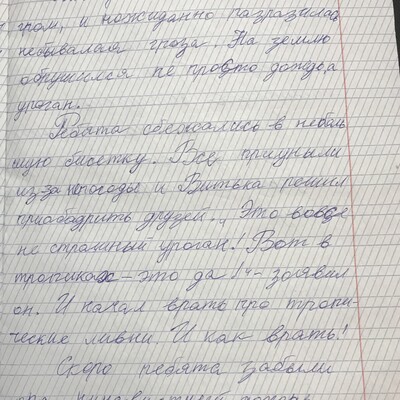 гром, и ножиданно разразилась
небывалая гроза. На землю
обрушился не просто дождь, а
ураган.
Ребята сбежались в неболь
шую беседку. Все приуныли
из-за непогоды и Витька решил
приободрить друзей. „Это вовсе
не страшный ураган! Вот в
тропиках – это да!“ – заявил
он. И начал врать про тропи-
ческие ливни. И как врать!
Скоро ребята забыли
про